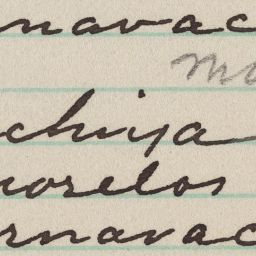 navac
Mo
chiya
morelos
rnavac